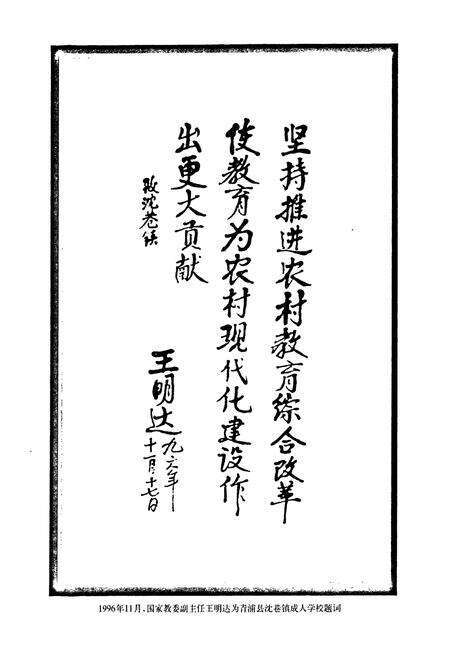 坚持推进农村教育综合改革
使教育为农村现代化建设作
出更大贡献
沈巷镇
王明达
九六年
十一月十七日
1996年11月,国家教委副主任王明达为青浦县沈巷镇成人学校题词